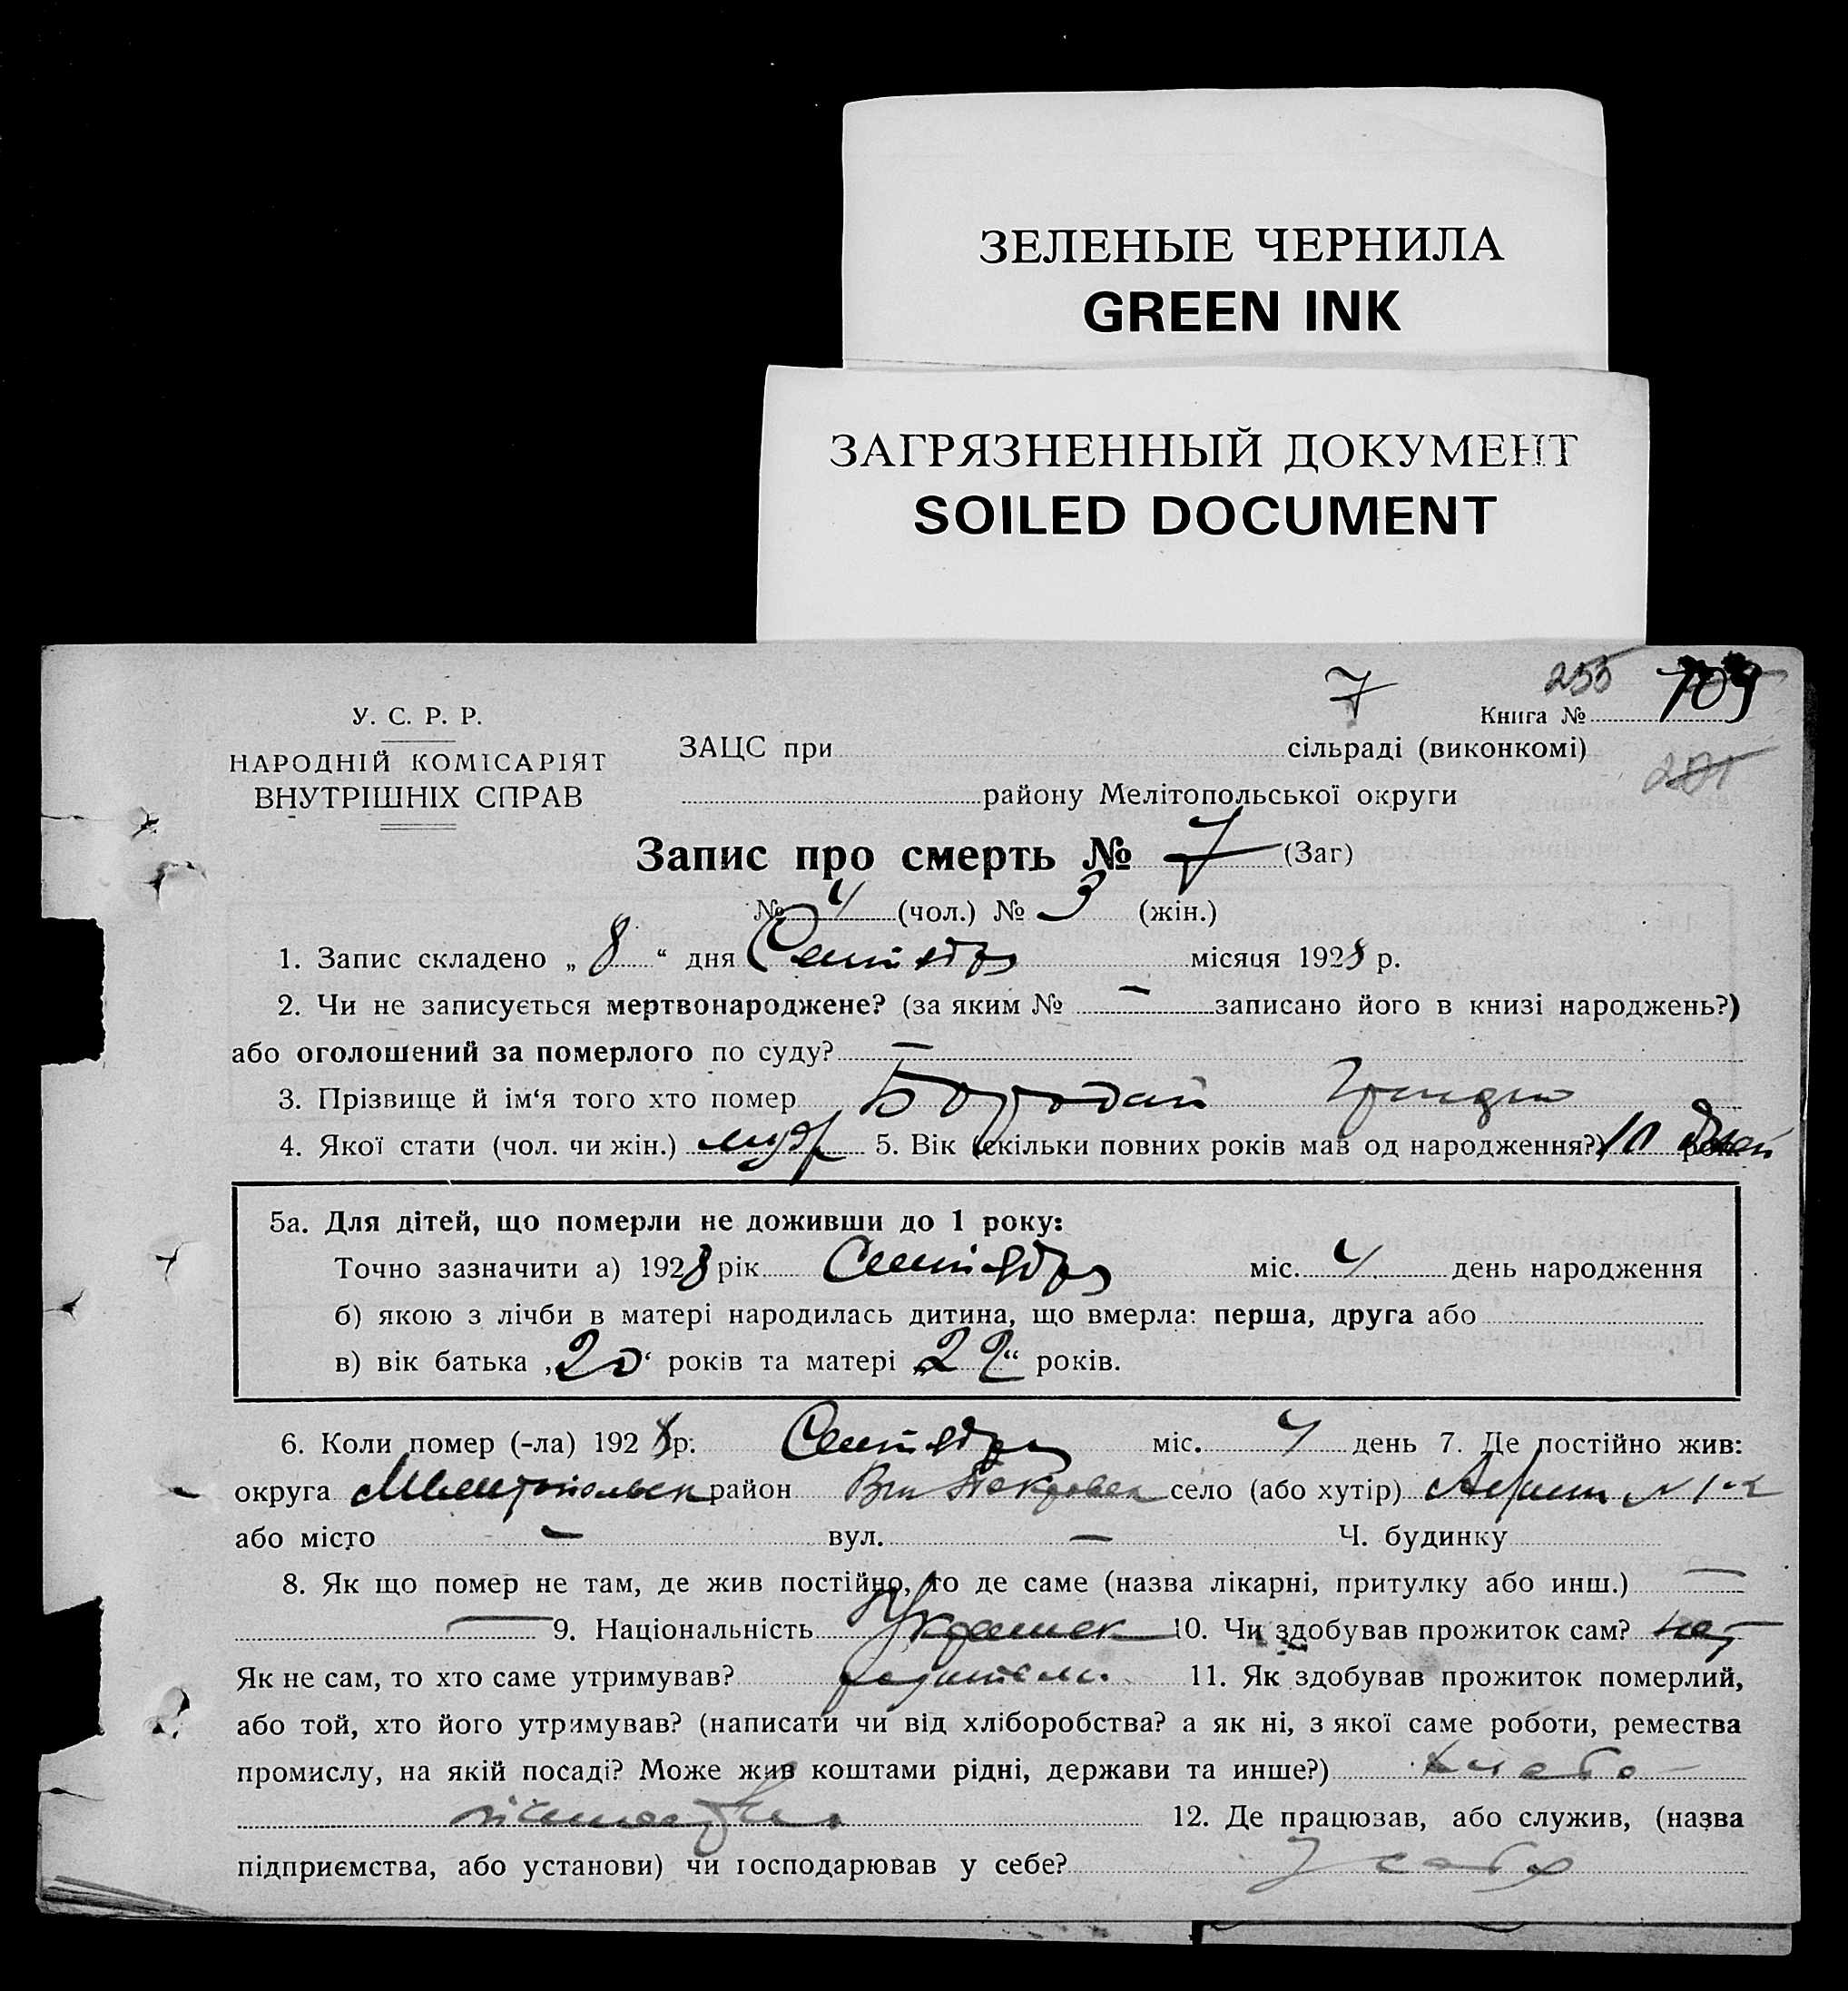 ЗЕЛЕНЫЕ ЧЕРНИЛА
GREEN INK
ЗАГРЯЗНЕННЫЙ ДОКУМЕНТ
SOILED DOCUMENT
7 255 709
У. С. Р. Р. Книга №
НАРОДНІЙ КОМІСАРІЯТ ЗАЦС при сільраді (виконкомі)
ВНУТРІШНІХ СПРАВ району Мелітопольської округи
Запис про смерть № 7 (Заг)
№ 4 (чол.) № 3 (жін.)
1. Запис складено „ 8 “ дня Сентября місяця 1928 р.
2. Чи не записується мертвонароджене? (за яким № — записано його в книзі народжень?)
або оголошений за померлого по суду? —
3. Прізвище й ім‘я того хто помер Бородай
4. Якої стати (чол. чи жін.) муж 5. Вік (скільки повних років мав од народження?) 10 дней
5а. Для дітей, що померли не доживши до 1 року:
Точно зазначити а) 1928 рік Сентября міс. 4 день народження
б) якою з лічби в матері народилась дитина, що вмерла: перша, друга або
в) вік батька „20“ років та матері „22“ років.
6. Коли помер (-ла) 1928 р. Сентября міс. 4 день 7. Де постійно жив:
округа Мелитопольск район село (або хутір)
або місто — вул. — Ч. будинку
8. Як що помер не там, де жив постійно, то де саме (назва лікарні, притулку або инш.) —
— 9. Національність 10. Чи здобував прожиток сам? нет
Як не сам, то хто саме утримував? родители 11. Як здобував прожиток померлий,
або той, хто його утримував? (написати чи від хліборобства? а як ні, з якої саме роботи, ремества
промислу, на якій посаді? Може жив коштами рідні, держави та инше?) хлебо-
пашеством 12. Де працював, або служив, (назва
підприємства, або установи) чи господарював у себе? у себя